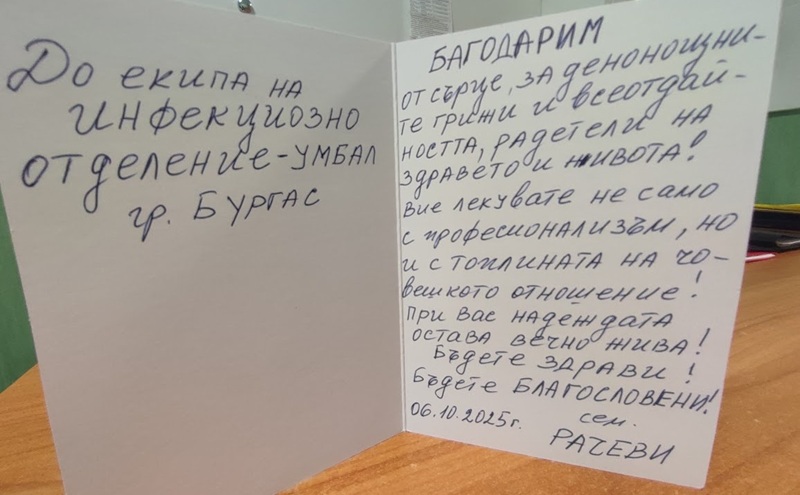 До екипа на
ИНФЕКЦИОЗНО
ОТДЕЛЕНИЕ-УМБАЛ
гр. БУРГАС
БАГОДАРИМ
от сърце, за денонощни-
те грижи и всеотдай-
ността, радетели на
здравето и живота!
Вие лекувате не само
с професионализъм, но
и с топлината на чо-
вешкото отношение!
При Вас надеждата
остава вечно жива!
Бъдете ЗДРАВИ!
Бъдете БЛАГОСЛОВЕНИ!
06.10.2025г. сем.
РАЧЕВИ